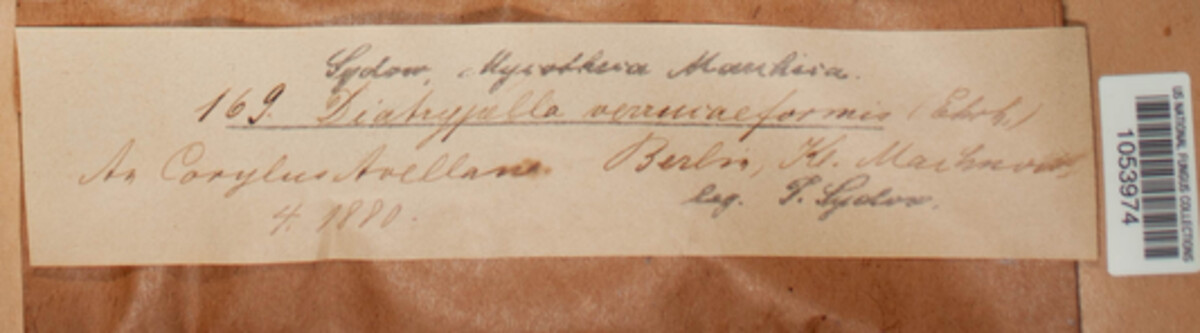 Sydow, Mycotheca Marchica.
169. Diatrypella verrucaeformis (Ehrh.)
An Corylus Avellana. Berlin, Kl. Machnow
leg. P. Sydow.
4. 1880.
US NATIONAL FUNGUS COLLECTIONS
1053974